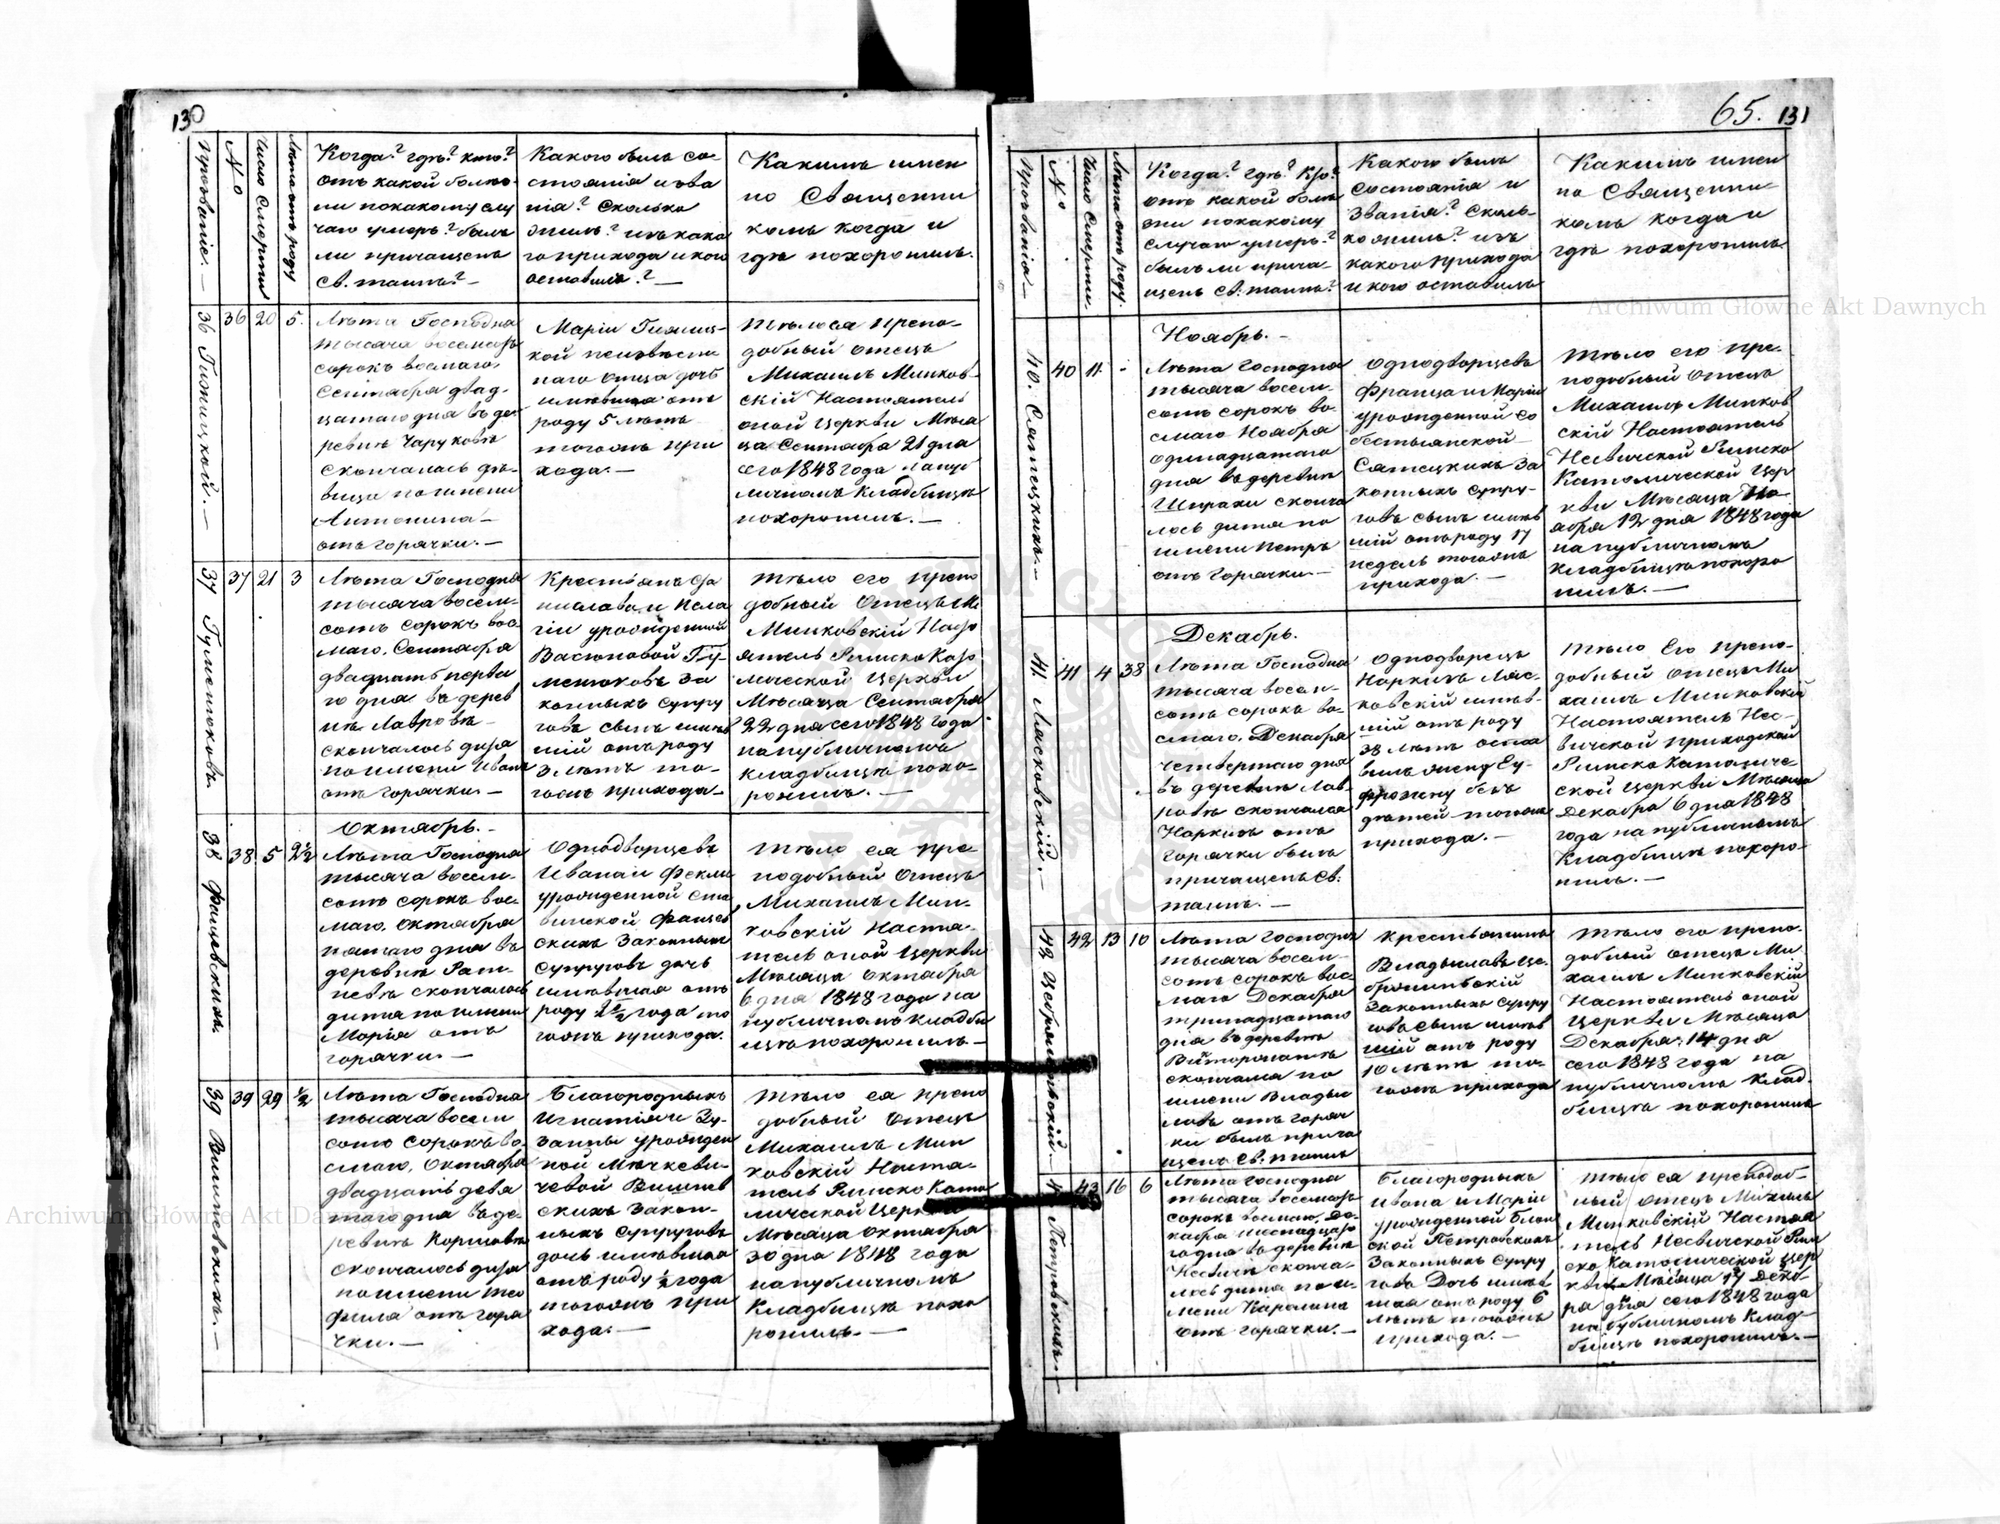 130
Прозваніе. —
No
Число Смерти
Лѣта отъ роду
Когда? гдѣ? кто?
отъ какой болѣз-
ни покакому слу
чаю умеръ? былъ
ли причащенъ
Св. таинъ? —
Какого былъ со-
стоянія изва
нія? Сколько
жилъ? изъ како
го прихода и кого
оставилъ? —
Какимъ имен
но Священни
комъ когда и
гдѣ похоронилъ.
36
36 20 5.
Лѣта Господня
тысяча восемьсотъ
сорокъ восмаго,
Сентября двад-
цатаго дня въ де-
ревнѣ Чаруковѣ
скончалась дѣ-
вица поимени
Антонина —
отъ горячки. —
Маріи
кой неизвѣстн
наго отца дочь
имѣвшая отъ
роду 5 лѣтъ
тогожъ при
хода. —
тѣло ея препо-
добный отецъ
Михаилъ Минков-
скій Настоятель
оной Церкви Мѣся
ца Сентября 21 дня
сего 1848 года на пуб
личномъ Кладбищѣ
похоронилъ. —
37
37 21 3
Лѣта Господня
тысяча восем-
сотъ сорокъ вос
маго, Сентября
двадцать перва
го дня въ дерев
нѣ Лавровѣ —
скончалось дитя
поимени Иванъ
отъ горячки. —
Крестьянъ Ста
нислава и Пела
гіи урожденной
Васюковой
законныхъ супру
говъ сынъ имѣв
шій отъ роду
3 лѣтъ то-
гожъ прихода —
тѣло его препо
добный Отецъ М.
Минковскій Насто
ятель Римско Като
лической Церкви
Мѣсяца Сентября
22 дня сего 1848 года
на публичномъ
кладбищѣ похо-
ронилъ. —
Октябрь. —
38
38 5 2½
Лѣта Господня
тысяча восем-
сотъ сорокъ вос-
маго, Октября
пятаго дня въ
деревнѣ Рат-
невѣ скончалось
дитя поимени
Марія отъ
горячки. —
Однодворцевъ
Ивана и Феклы
урожденной
скихъ Законныхъ
Супруговъ дочь
имѣвшая отъ
роду 2½ года то
гожъ прихода.
тѣло ея пре
подобный Отецъ
Михаилъ Мин-
ковскій Настоя-
тель оной Церкви
Мѣсяца Октября
6 дня 1848 года на
публичномъ кладби
щѣ похоронилъ —
39
39 29 ½
Лѣта Господня
тысяча восем
сотъ сорокъ во-
смаго, Октября
двадцать девя
таго дня въ де-
ревнѣ Коршовѣ
скончалось дитя
поимени Тео
фила отъ горя
чки. —
Благородныхъ
Игнатія и Зу-
занны урожден
ной Мѣчкеви-
чевой
скихъ Закон-
ныхъ Супруговъ
дочь имѣвшая
отъ роду ½ года
тогожъ при
хода. —
тѣло ея препо
добный Отецъ
Михаилъ Мин
ковскій Настоя-
тель Римско Като
лической Церкви
Мѣсяца Октября
30 дня 1848 года
на публичномъ
Кладбищѣ похо
ронилъ. —
65. 131
Прозванія —
No
Число Смерти
Лѣта отъ роду
Когда? гдѣ? Кто?
отъ какой болѣ
зни покакому
случаю умеръ?
былъ ли прича-
щенъ Св. таинъ?
Какого былъ
Состоянія и
Званія? Сколь-
ко жилъ? изъ
какого прихода
и кого оставилъ
Какимъ имен
но Священни-
комъ когда и
гдѣ похоронилъ
Ноябрь. —
40.
40 11 -
Лѣта Господня
тысяча восем-
сотъ сорокъ во-
смаго Ноября
одинадцатаго
дня въ деревнѣ
сконча
лось дитя по
имени Петръ
отъ горячки —
Однодворцевъ
Франца и Маріи
урожденной Со
бестьянской
за
конныхъ супру-
говъ сынъ имѣв
шій отъ роду 17
недѣль тогожъ
прихода. —
тѣло его пре-
подобный Отецъ
Михаилъ Минков
скій Настоятель
Несвичской Римско
Католической Цер
кви Мѣсяца Но-
ября 12 дня 1848 года
на публичномъ
кладбищѣ похоро
нилъ. —
Декабрь.
41. Лясковскій. —
41 4 38
Лѣта Господня
тысяча восем-
сотъ сорокъ во-
смаго, Декабря
четвертаго дня
въ деревнѣ Лав-
ровѣ скончался
Наркизъ отъ
горячки былъ
причащенъ Св.
таинъ. —
Однодворецъ
Наркизъ Ляс-
ковскій имѣв-
шій отъ роду
38 лѣтъ оста
вилъ жену Еу-
фрозину безъ
дѣтей тогожъ
прихода. —
тѣло Его препо-
добный Отецъ Ми-
хаилъ Минковскій
Настоятель Нес-
вичской приходской
Римско Католиче-
ской Церкви Мѣсяца
Декабря 6 дня 1848
года на публичномъ
Кладбищѣ похоро-
нилъ. —
42
42 13 10
Лѣта Господня
тысяча восем-
сотъ сорокъ вос-
маго Декабря
тринадцатаго
дня въ деревнѣ
скончался по
имени Влады
лавъ отъ горяч
ки былъ прича
щенъ Св. таинъ
Крестьянинъ
Владыславъ Це-
Законныхъ супру
говъ сынъ имѣв
шій отъ роду
10 лѣтъ то-
гожъ прихода
тѣло его препо-
добный отецъ Ми
хаилъ Минковскій
Настоятель оной
Церкви Мѣсяца
Декабря 14 дня
сего 1848 года на
публичномъ Клад-
бищѣ похоронилъ
Петровскихъ. —
43 16 6
Лѣта Господня
тысяча восемьсотъ
сорокъ восмаго, Де-
кабря шеснадцато
го дня въ деревнѣ
Несвичѣ сконча-
лось дитя по и-
мени Каролина
отъ горячки. —
Благородныхъ
Ивана и Маріи
урожденной
ской Петровскихъ
Законныхъ Супру
говъ Дочь имѣв-
шая отъ роду 6
лѣтъ тогожъ
прихода. —
тѣло ея преподоб-
ный отецъ Михаилъ
Минковскій Настоя
тель Несвичской Рим
ско Католической Цер
кви Мѣсяца 17 Декаб-
ря дня сего 1848 года
на публичномъ Клад-
бищѣ похоронилъ. —
Archiwum Główne Akt Dawnych
Archiwum Główne Akt Dawnych